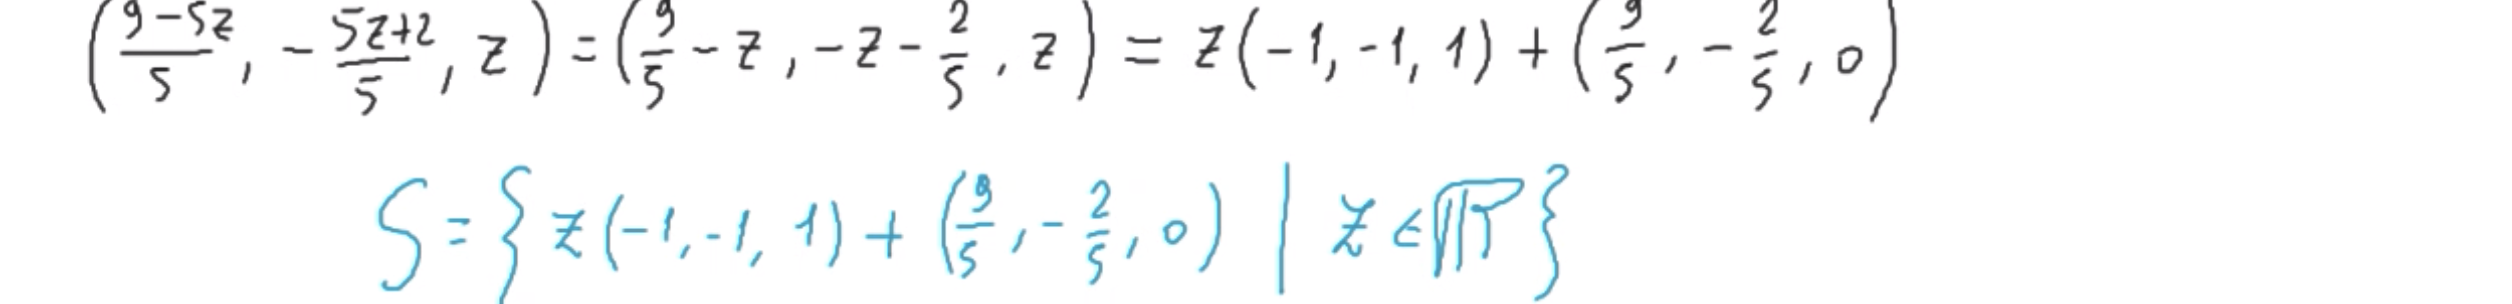 (\frac{9-5z}{5}, -\frac{5z+2}{5}, z) = (\frac{9}{5} - z, -z - \frac{2}{5}, z) = z(-1, -1, 1) + (\frac{9}{5}, -\frac{2}{5}, 0)
S = \{ z(-1, -1, 1) + (\frac{9}{5}, -\frac{2}{5}, 0) | z ∈ \}